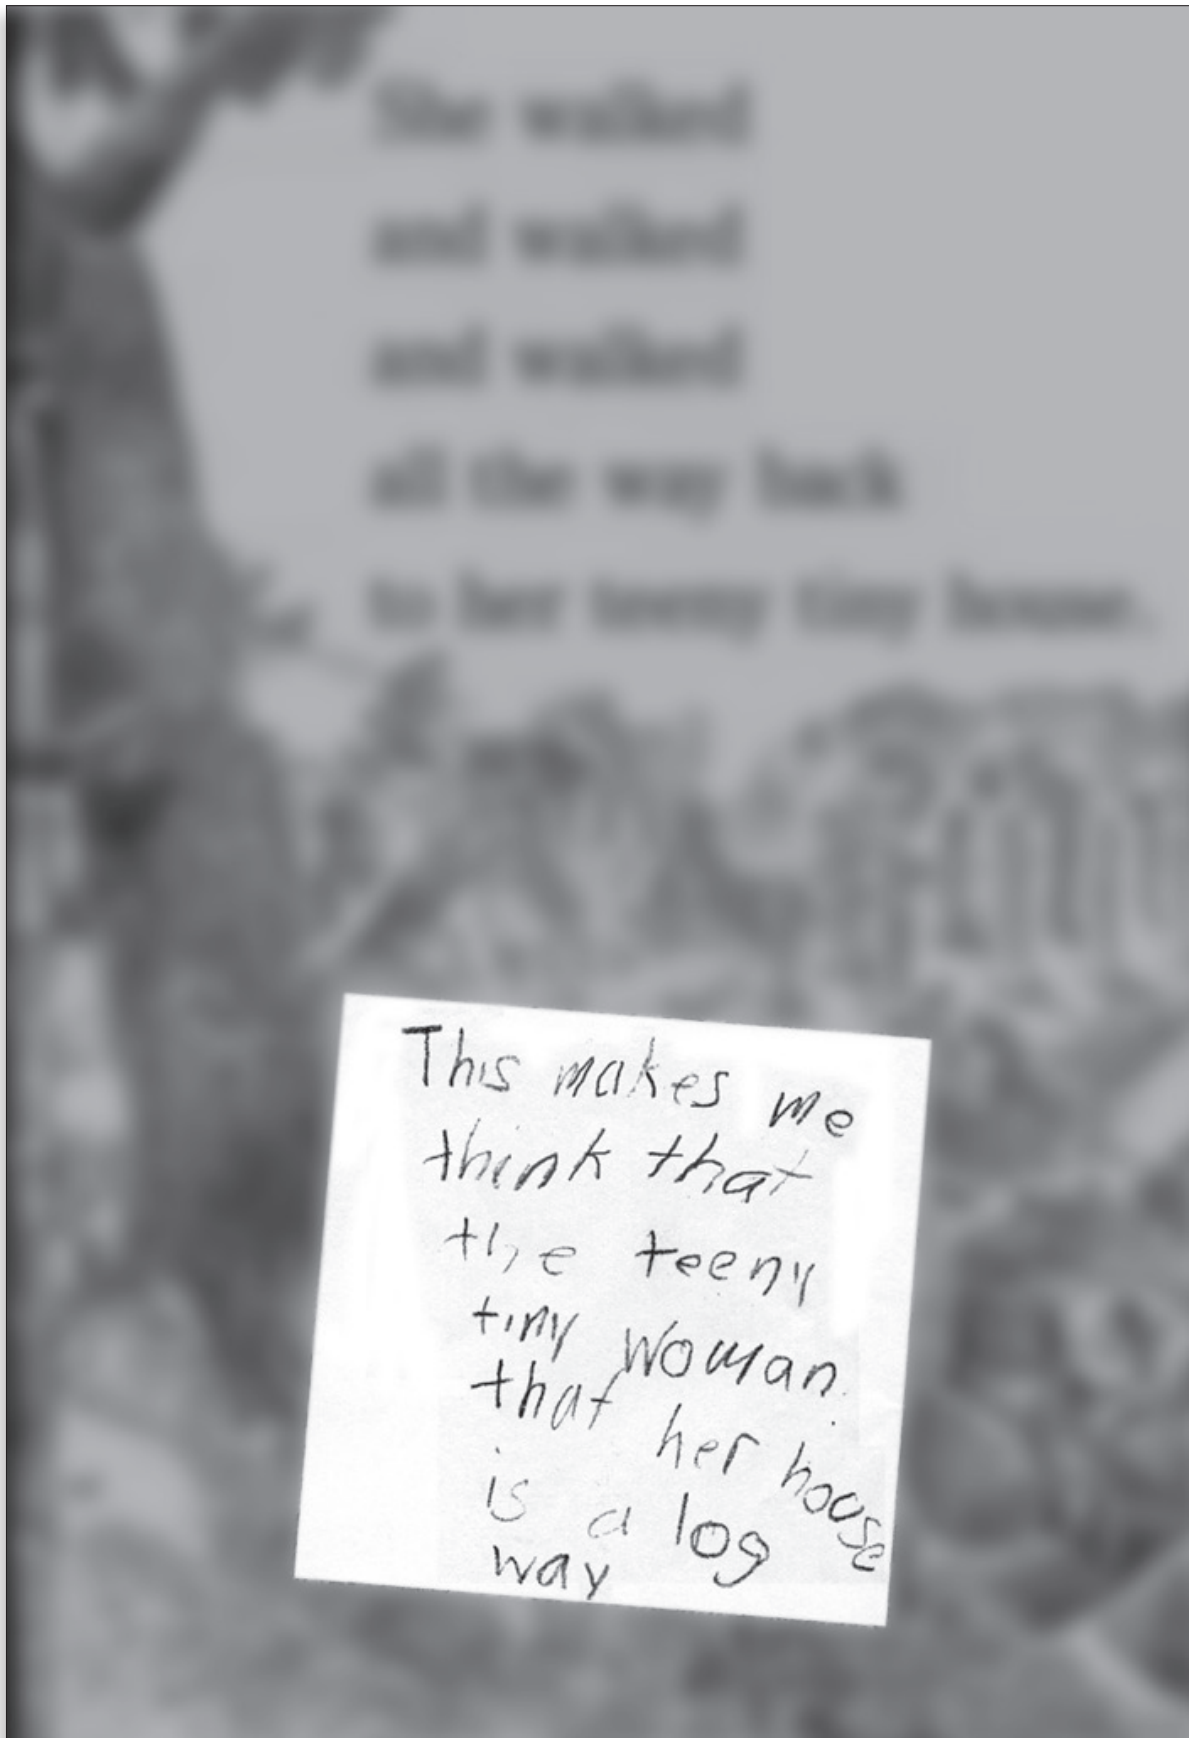 She walked
and walked
and walked
all the way back
to her teeny tiny house.
This makes me
think that
the teeny
tiny woman.
that her house
is a log
way